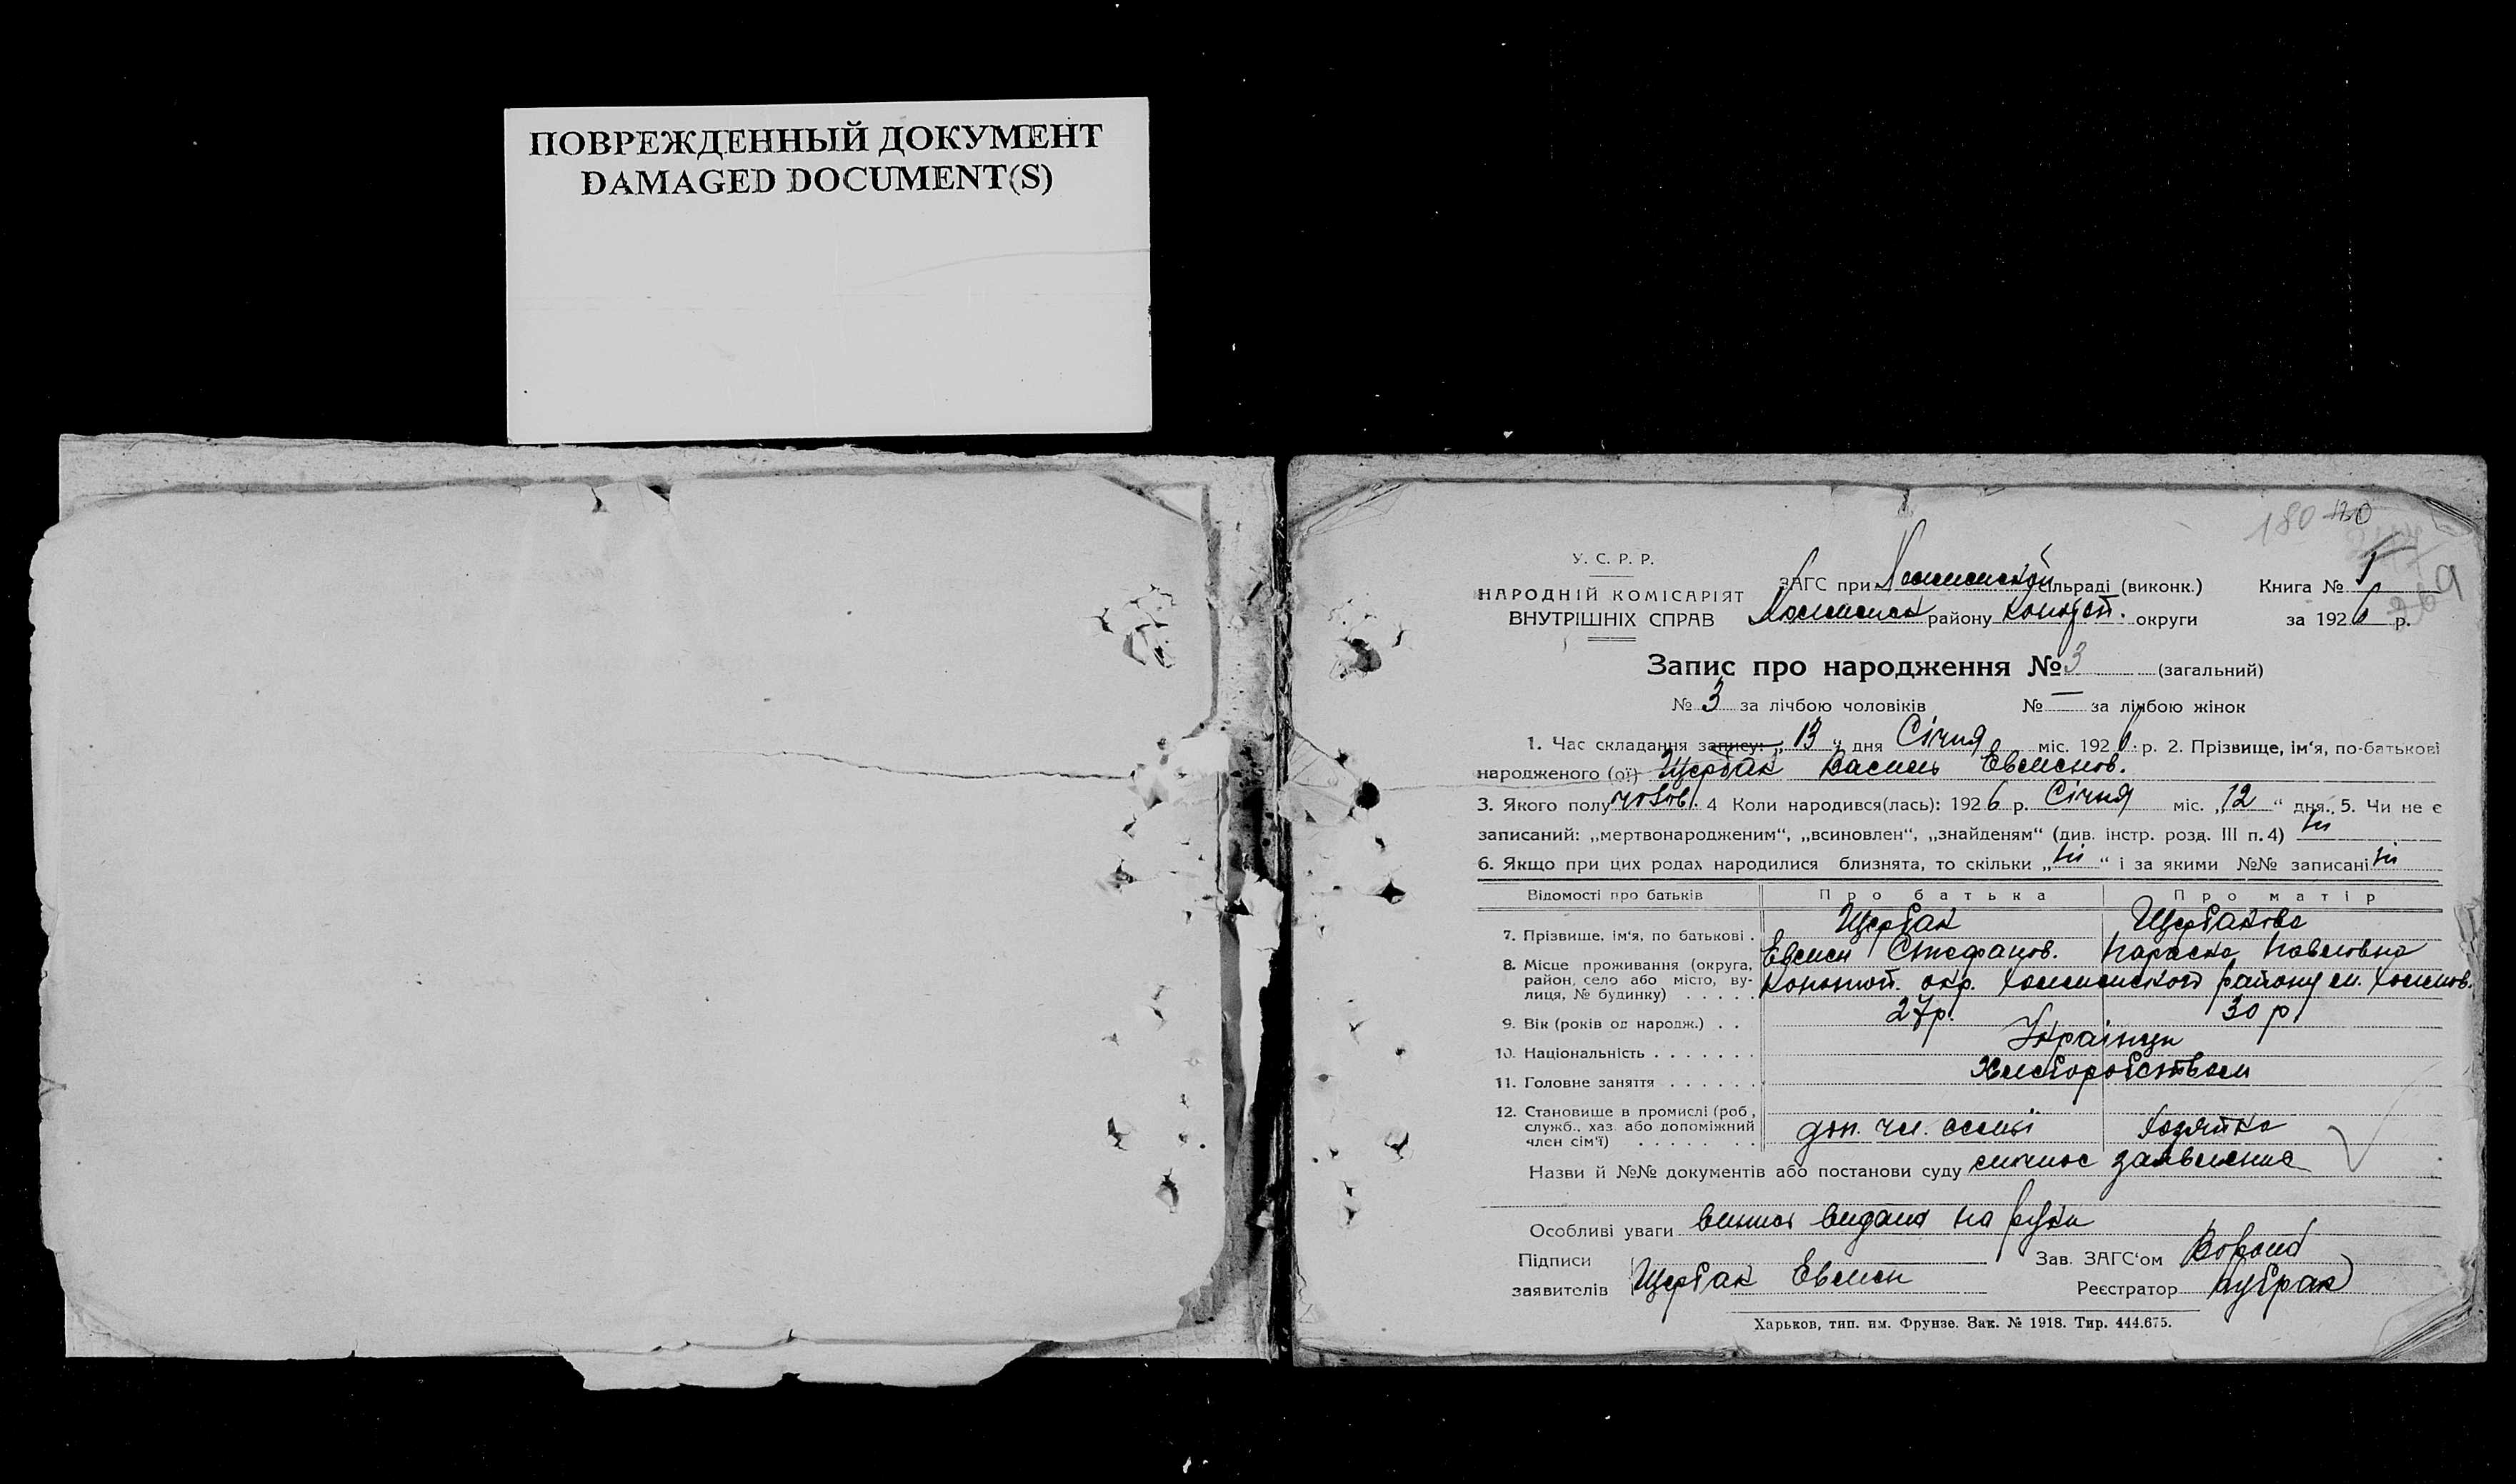 ПОВРЕЖДЕННЫЙ ДОКУМЕНТ
DAMAGED DOCUMENT(S)
180
У. С. Р. Р.
НАРОДНІЙ КОМІСАРІЯТ
ВНУТРІШНІХ СПРАВ
ЗАГС при сільраді (виконк.)
району Коното́п. округи
Книга № 1
за 1926 р.
Запис про народження № 3 (загальний)
№ 3 за лічбою чоловіків № — за лічбою жінок
1. Час складання запису: „13" дня Січня міс. 1926 р. 2. Прізвище, ім'я, по-батькові
народженого (ої) Щербак Василь Евменов.
3. Якого полу чолов. 4 Коли народився(лась): 1926 р. Січня міс. „12" дня. 5. Чи не є
записаний: „мертвонародженим", „всиновлен", „знайденям" (див. інстр. розд. III п. 4) ні
6. Якщо при цих родах народилися близнята, то скільки „ні" і за якими №№ записані ні
Відомості про батьків Про батька Про матір
7. Прізвище, ім'я, по батькові . Щербак Щербакова
Евмен Стефанов. Параска Павловна
8. Місце проживання (округа,
район, село або місто, ву-
лиця, № будинку) . . . . . Конотоп. окр. району м.
9. Вік (років од народж.) . . 27 р. 30 р.
10. Національність . . . . . . . Українци
11. Головне заняття . . . . . . Хлеборобством
12. Становище в промислі (роб.,
служб., хаз. або допоміжний
член сім'ї) . . . . . . . . доп. чл. семьі Хозяйка
Назви й №№ документів або постанови суду личное заявление
Особливі уваги выпись видана на руки
Підписи
заявителів Щербак Евмен
Зав. ЗАГС'ом
Реєстратор
Харьков, тип. им. Фрунзе. Зак. № 1918. Тир. 444.675.